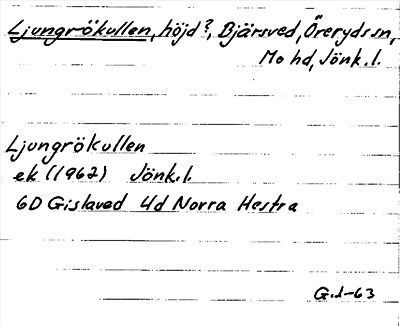 Ljungrökullen, höjd?, Bjärsved, Öreryds sn,
Mo hd, Jönk. l.
Ljungrökullen
ek (1962) Jönk. l.
6D Gislaved 4d Norra Hestra
G.J-63